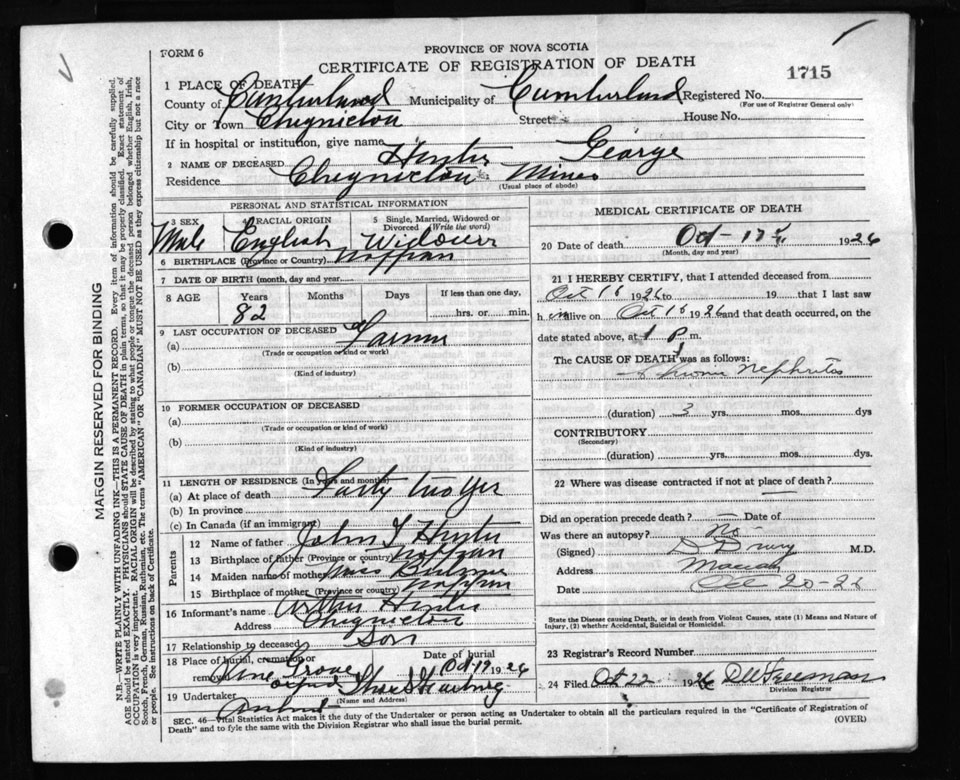 FORM 6
PROVINCE OF NOVA SCOTIA
CERTIFICATE OF REGISTRATION OF DEATH
1715
1 PLACE OF DEATH
County of Cumberland Municipality of Cumberland Registered No.
(For use of Registrar General only)
City or Town Chignicton Street House No.
If in hospital or institution, give name
2 NAME OF DECEASED Hunter George
Residence Chignicton Mines
(Usual place of abode)
PERSONAL AND STATISTICAL INFORMATION
3 SEX Male
4 RACIAL ORIGIN English
5 Single, Married, Widowed or Divorced (Write the word) Widower
6 BIRTHPLACE (Province or Country) Nappan
7 DATE OF BIRTH (month, day and year)
8 AGE Years 82 Months Days If less than one day, hrs. or min.
9 LAST OCCUPATION OF DECEASED
(a) Farmer
(Trade or occupation or kind or work)
(b)
(Kind of industry)
10 FORMER OCCUPATION OF DECEASED
(a)
(Trade or occupation or kind of work)
(b)
(Kind of industry)
11 LENGTH OF RESIDENCE (In years and months)
(a) At place of death Forty two Yer
(b) In province
(c) In Canada (if an immigrant)
Parents
12 Name of father John Hunter
13 Birthplace of father (Province or country) Nappan
14 Maiden name of mother
15 Birthplace of mother (Province or country) Nappan
16 Informant's name Arthur Hunter
Address Chignicton
17 Relationship to deceased Son
18 Place of burial, cremation or removal Pine Grove Date of burial Oct 19 1926
19 Undertaker
(Name and Address)
Amherst
MEDICAL CERTIFICATE OF DEATH
20 Date of death Oct - 17 1926
(Month, day and year)
21 I HEREBY CERTIFY, that I attended deceased from
Oct 16 1926 to 19 that I last saw
him alive on Oct 16 1926 and that death occurred, on the
date stated above, at 1 P m.
The CAUSE OF DEATH was as follows:
Chronic Nephritis
(duration) 3 yrs. mos. dys
CONTRIBUTORY
(Secondary)
(duration) yrs. mos. dys
22 Where was disease contracted if not at place of death? —
Did an operation precede death? — Date of
Was there an autopsy? No
(Signed) D Drury M.D.
Address Maccan
Date Oct 20-26
State the Disease causing Death, or in death from Violent Causes, state (1) Means and Nature of Injury, (2) whether Accidental, Suicidal or Homicidal.
23 Registrar's Record Number
24 Filed Oct 22 1926 D W Freeman
Division Registrar
SEC. 46—Vital Statistics Act makes it the duty of the Undertaker or person acting as Undertaker to obtain all the particulars required in the "Certificate of Registration of
Death" and to fyle the same with the Division Registrar who shall issue the burial permit.
(OVER)
MARGIN RESERVED FOR BINDING
N.B.—WRITE PLAINLY WITH UNFADING INK—THIS IS A PERMANENT RECORD. Every item of information should be carefully supplied.
AGE should be stated EXACTLY. PHYSICIANS should STATE CAUSE OF DEATH in plain terms, so that it may be properly classified. Exact statement of
OCCUPATION is very important. RACIAL ORIGIN will be described by stating to what people or tongue the deceased person belonged whether English, Irish,
Scotch, French, German, Russian, Ruthenian, etc. The terms "AMERICAN" OR "CANADIAN" MUST NOT BE USED as they express citizenship but not a race
or people. See instructions on back of Certificate.